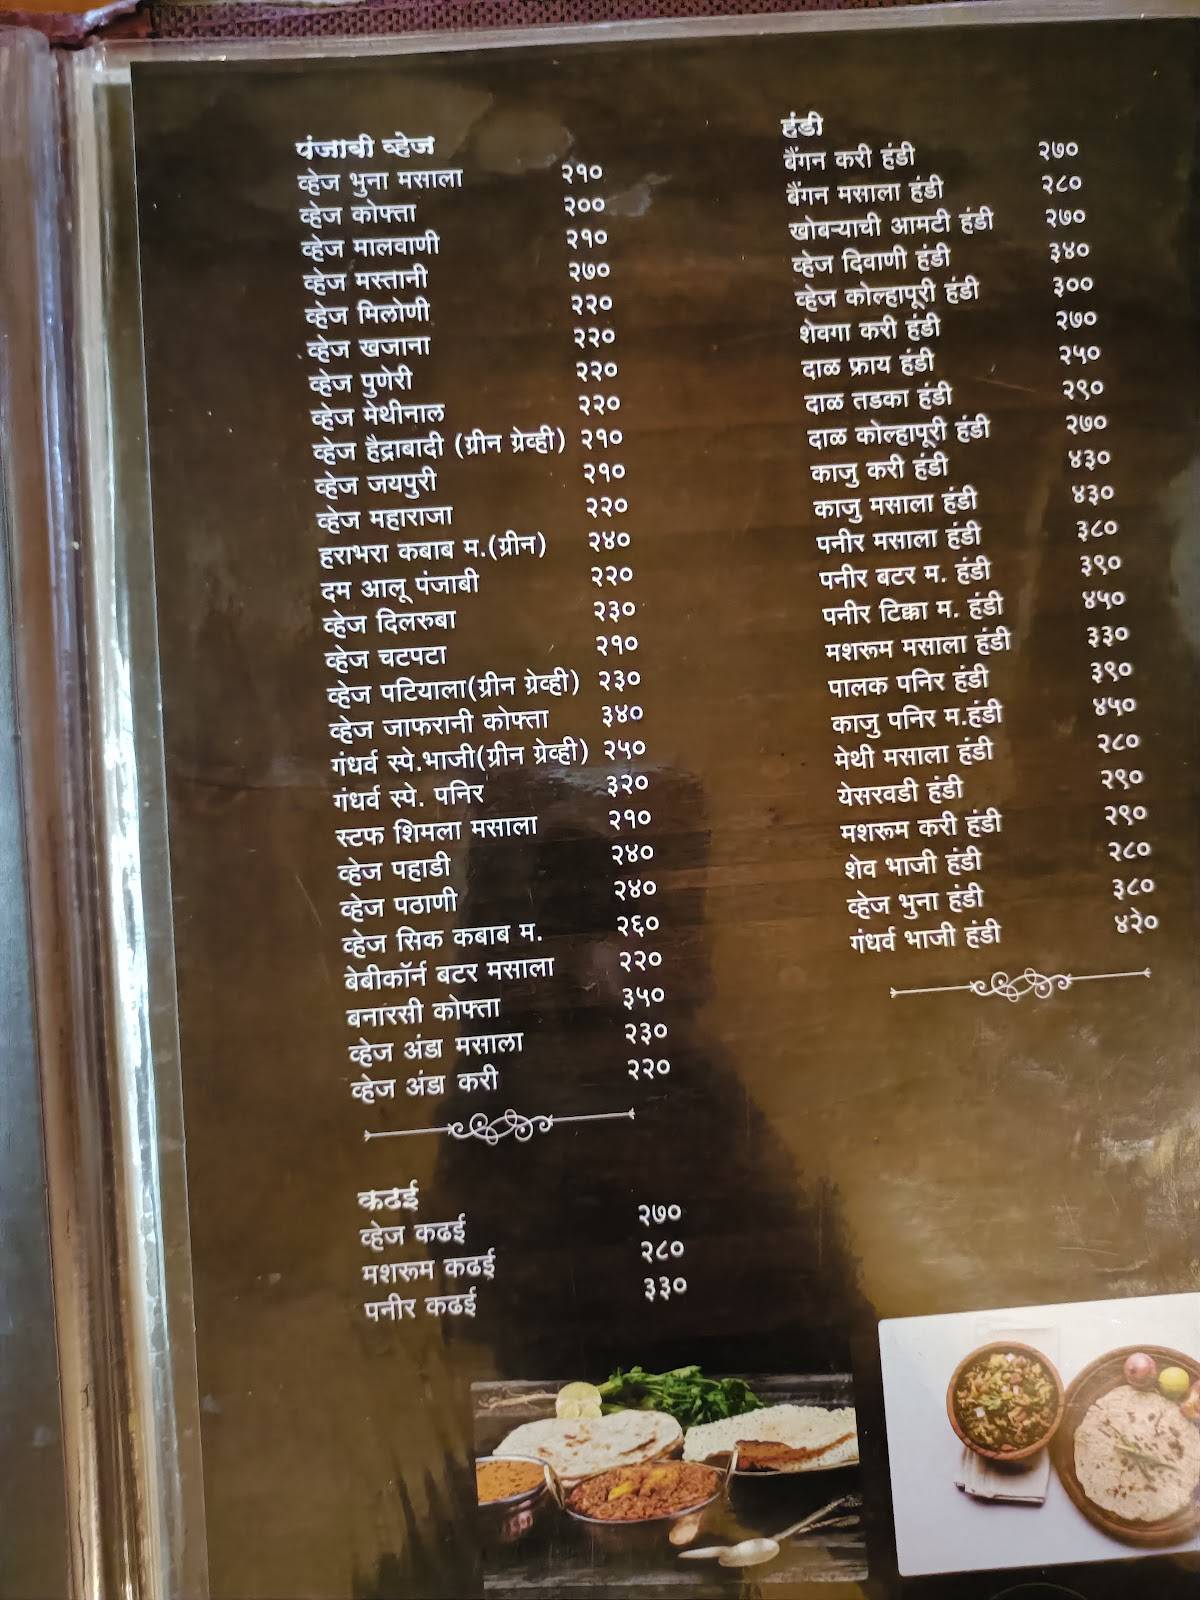 पंजाबी व्हेज
व्हेज भुना मसाला २१०
व्हेज कोफ्ता २००
व्हेज मालवाणी २१०
व्हेज मस्तानी २७०
व्हेज मिलोणी २२०
व्हेज खजाना २२०
व्हेज पुणेरी २२०
व्हेज मेथीनाल २२०
व्हेज हैद्राबादी (ग्रीन ग्रेव्ही) २१०
व्हेज जयपुरी २१०
व्हेज महाराजा २२०
हराभरा कबाब म.(ग्रीन) २४०
दम आलू पंजाबी २२०
व्हेज दिलरुबा २३०
व्हेज चटपटा २१०
व्हेज पटियाला(ग्रीन ग्रेव्ही) २३०
व्हेज जाफरानी कोफ्ता ३४०
गंधर्व स्पे.भाजी(ग्रीन ग्रेव्ही) २५०
गंधर्व स्पे. पनिर ३२०
स्टफ शिमला मसाला २१०
व्हेज पहाडी २४०
व्हेज पठाणी २४०
व्हेज सिक कबाब म. २६०
बेबीकॉर्न बटर मसाला २२०
बनारसी कोफ्ता ३५०
व्हेज अंडा मसाला २३०
व्हेज अंडा करी २२०
कढई
व्हेज कढई २७०
मशरूम कढई २८०
पनीर कढई ३३०
हंडी
बैंगन करी हंडी २७०
बैंगन मसाला हंडी २८०
खोबऱ्याची आमटी हंडी २७०
व्हेज दिवाणी हंडी ३४०
व्हेज कोल्हापूरी हंडी ३००
शेवगा करी हंडी २७०
दाळ फ्राय हंडी २५०
दाळ तडका हंडी २९०
दाळ कोल्हापूरी हंडी २७०
काजु करी हंडी ४३०
काजु मसाला हंडी ४३०
पनीर मसाला हंडी ३८०
पनीर बटर म. हंडी ३९०
पनीर टिक्का म. हंडी ४५०
मशरूम मसाला हंडी ३३०
पालक पनिर हंडी ३९०
काजु पनिर म.हंडी ४५०
मेथी मसाला हंडी २८०
येसरवडी हंडी २९०
मशरूम करी हंडी २९०
शेव भाजी हंडी २८०
व्हेज भुना हंडी ३८०
गंधर्व भाजी हंडी